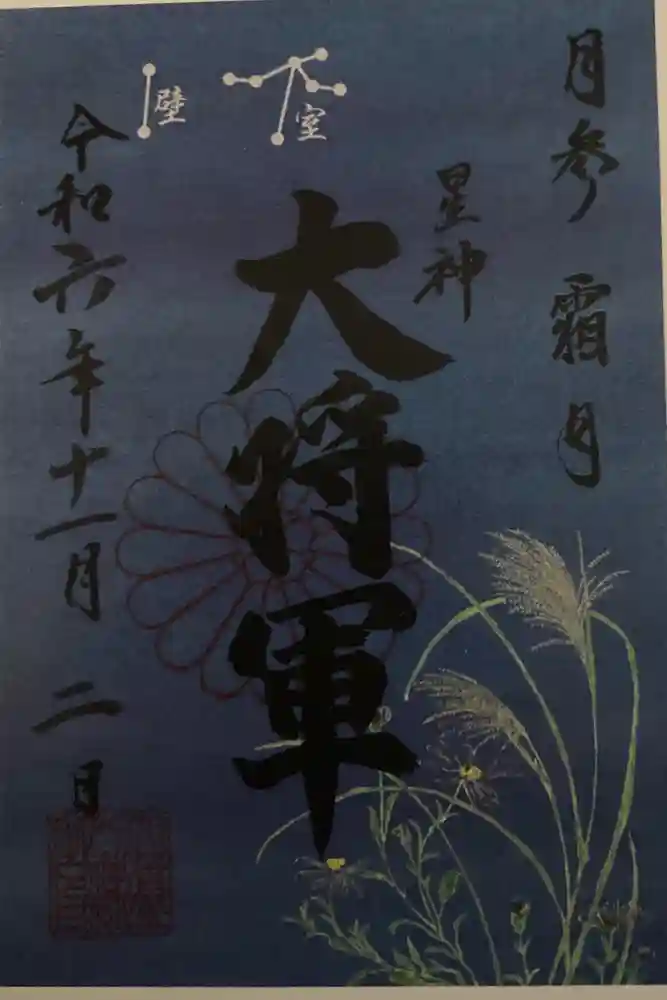 月参 霜月
星神
大将軍
室
壁
令和六年十一月 二日